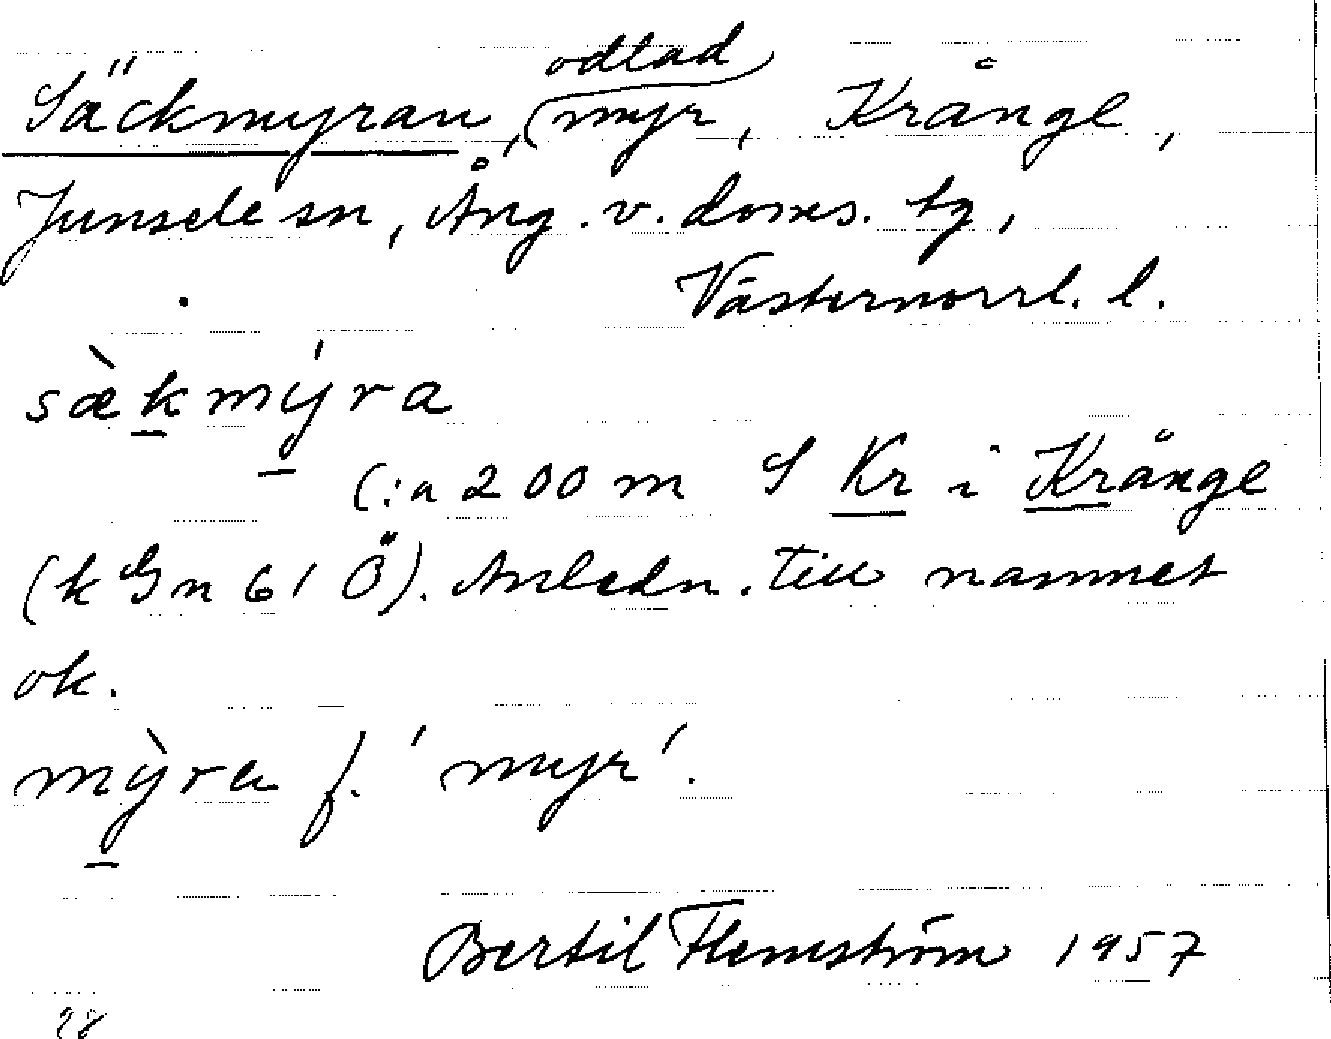 Säckmyran, odlad myr, Krånge,
Junsele sn, Ång. v. doms. tg,
Västernorrl. l.
sæ̀kmýra
C:a 200 m S Kr i Krånge
(k Gn 61 Ö). Anledn. till namnet
ok.
mỳra f. 'myr'.
Bertil Flemström 1957
28